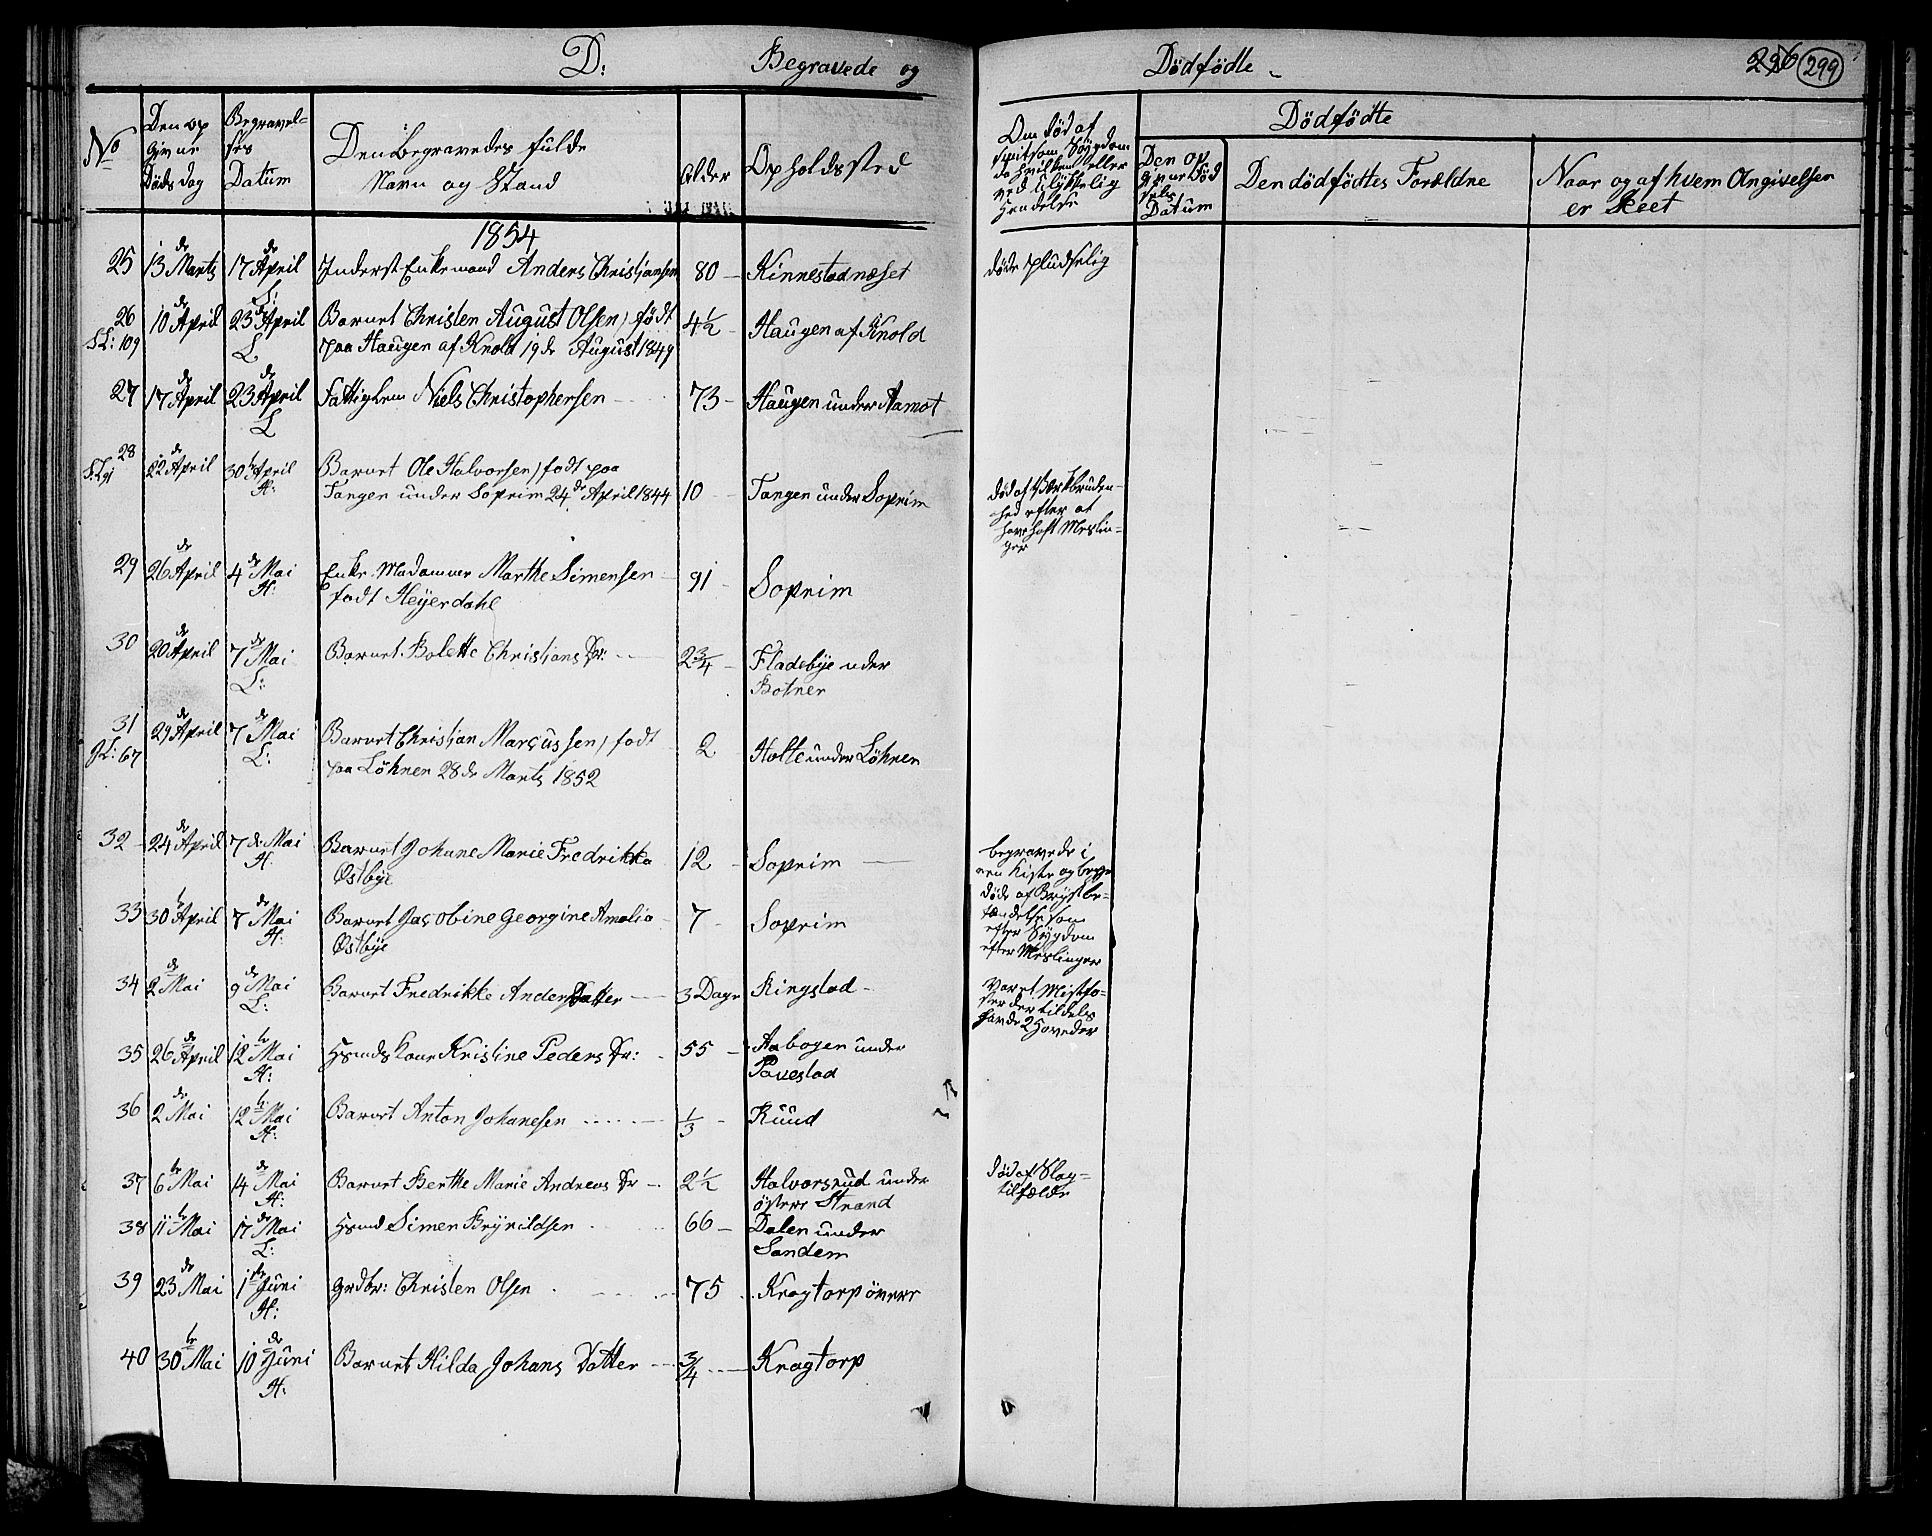 D: Begravede og Dödfödte
296 299
No
Den opgivne Dödsdag
Begravelses Datum
Den Begravedes fulde Navn og Stand
Alder
Opholdsted
Om död af smitsom Sÿgdom da hvilken eller ved Ulÿkkelig Hendelse
Dödfödte
Den opgivne Födsels Datum
Den dödfödtes Forældre
Naar og af hvem Angivelsen er Skeet
1854
25 13de Marts 17de April L: Inderst Enkemand Anders Christiansen 80 Kinnestadnæset döde pludselig
26 S L: 109 10de April 23de April L Barnet Christen August Olsen, födt
paa Haugen af Knold 19de August 1849 4½ Haugen af Knold
27 17de April 23de April L Fattiglem Niels Christophersen 73 Haugen under Aamot
28 22de April 30te April H: Barnet Ole Halvorsen, födt paa
Tangen under Soprim 24de April 1844 10 Tangen under Soprim
död af
hed efter at
have haft Meslin-
ger
29 26de April 4de Mai H: Enke Madamme Marthe Simensen
födt Heÿerdahl 91 Soprim
30 20de April 7de Mai L: Barnet Bolette Christians Dr: 2¾ Fladebÿe under
Botner
31 L: 67 29de April 7de Mai L: Barnet Christian Marcussen, födt
paa Löhnen 28de Marts 1852 2 Holte under Löhnen
32 24de April 7de Mai H: Barnet Johane Marie Fredrikka
Østbÿe 12 Soprim
begravede i
een Kiste og begge
döde af Brÿstbe-
tændelse som
efter Sÿgdom
efter Meslinger
33 30te April 7de Mai H: Barnet Jacobine Georgine Amalia
Østbÿe 7 Soprim
34 2de Mai 9de Mai L: Barnet Fredrikke Anders Datter 3 Dage Ringstad
Var et Misfo-
ster der tildels
havde 2 Hoveder
35 26de April 12te Mai H: Hsmdskone Kristine Peders Dr: 55 Aabogen under
Tavestad
36 2de Mai 12te Mai H: Barnet Anton Johanesen ⅓ Ruud
37 6te Mai 14de Mai H: Barnet Berthe Marie Andreas Dr 2½ Halvorsrud under
östere Strand
död af Slag-
tilfælde
38 11te Mai 17de Mai L: Hsmd Simen Brÿnildsen 66 Dalen under
Sandem
39 23de Mai 1ste Juni H: Grdbr: Christen Olsen 75 Kragtorp övere
40 30te Mai 10de Juni H: Barnet Hilda Johans Datter ¾ Kragtorp